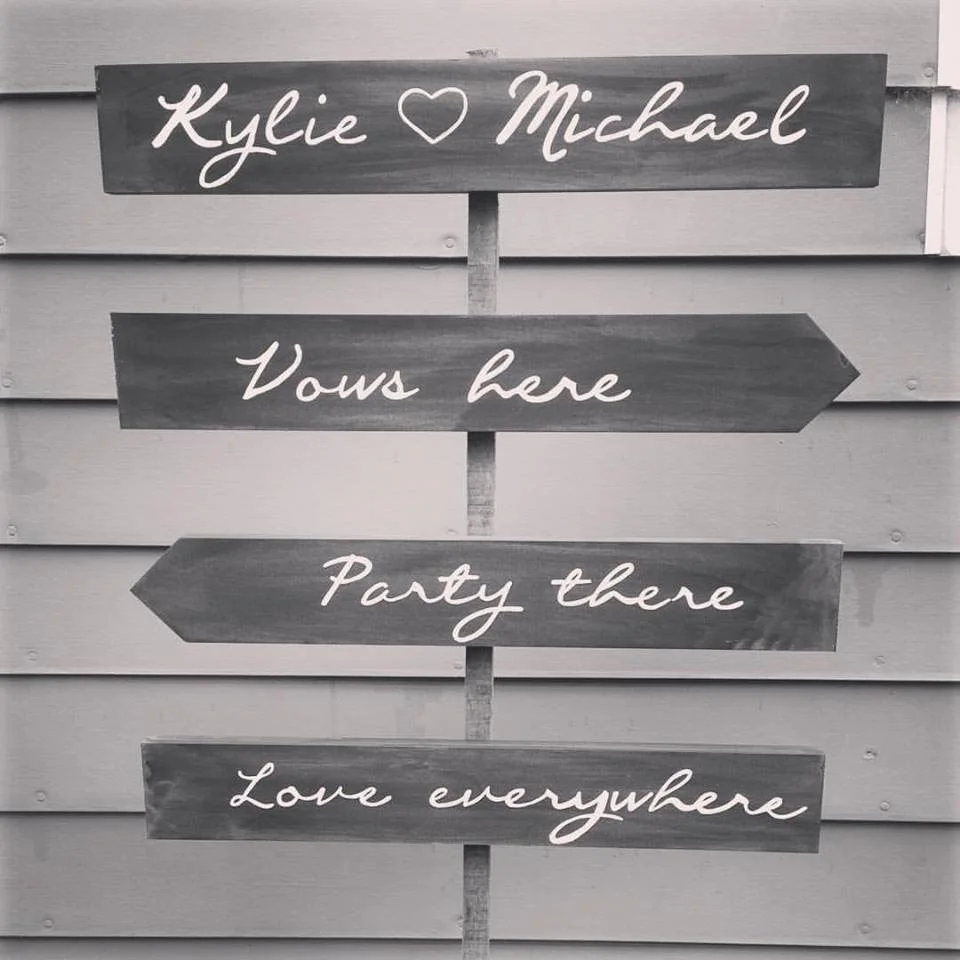 Kylie ♡ Michael
Vows here
Party there
Love everywhere